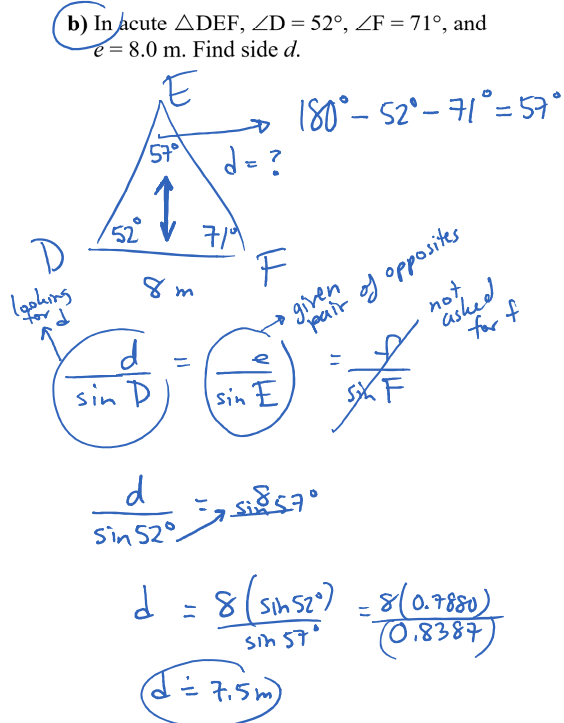 b) In acute △DEF, ∠D = 52°, ∠F = 71°, and
e = 8.0 m. Find side d.
E
180° − 52° − 71° = 57°
57°
d = ?
52° 71°
D F
8 m
looking for d
given pair of opposites
not asked for f
d/sin D = e/sin E = f/sin F
d/sin 52° = 8/sin 57°
d = 8(sin 52°)/sin 57° = 8(0.7880)/(0.8387)
d ≐ 7.5 m